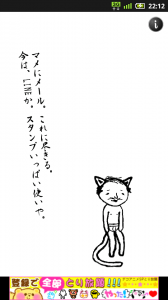 3G
22:12
マメにメール。これに尽きる。
今は、LINEか。スタンプいっぱい使いや。
登録で全部とり放題!!!